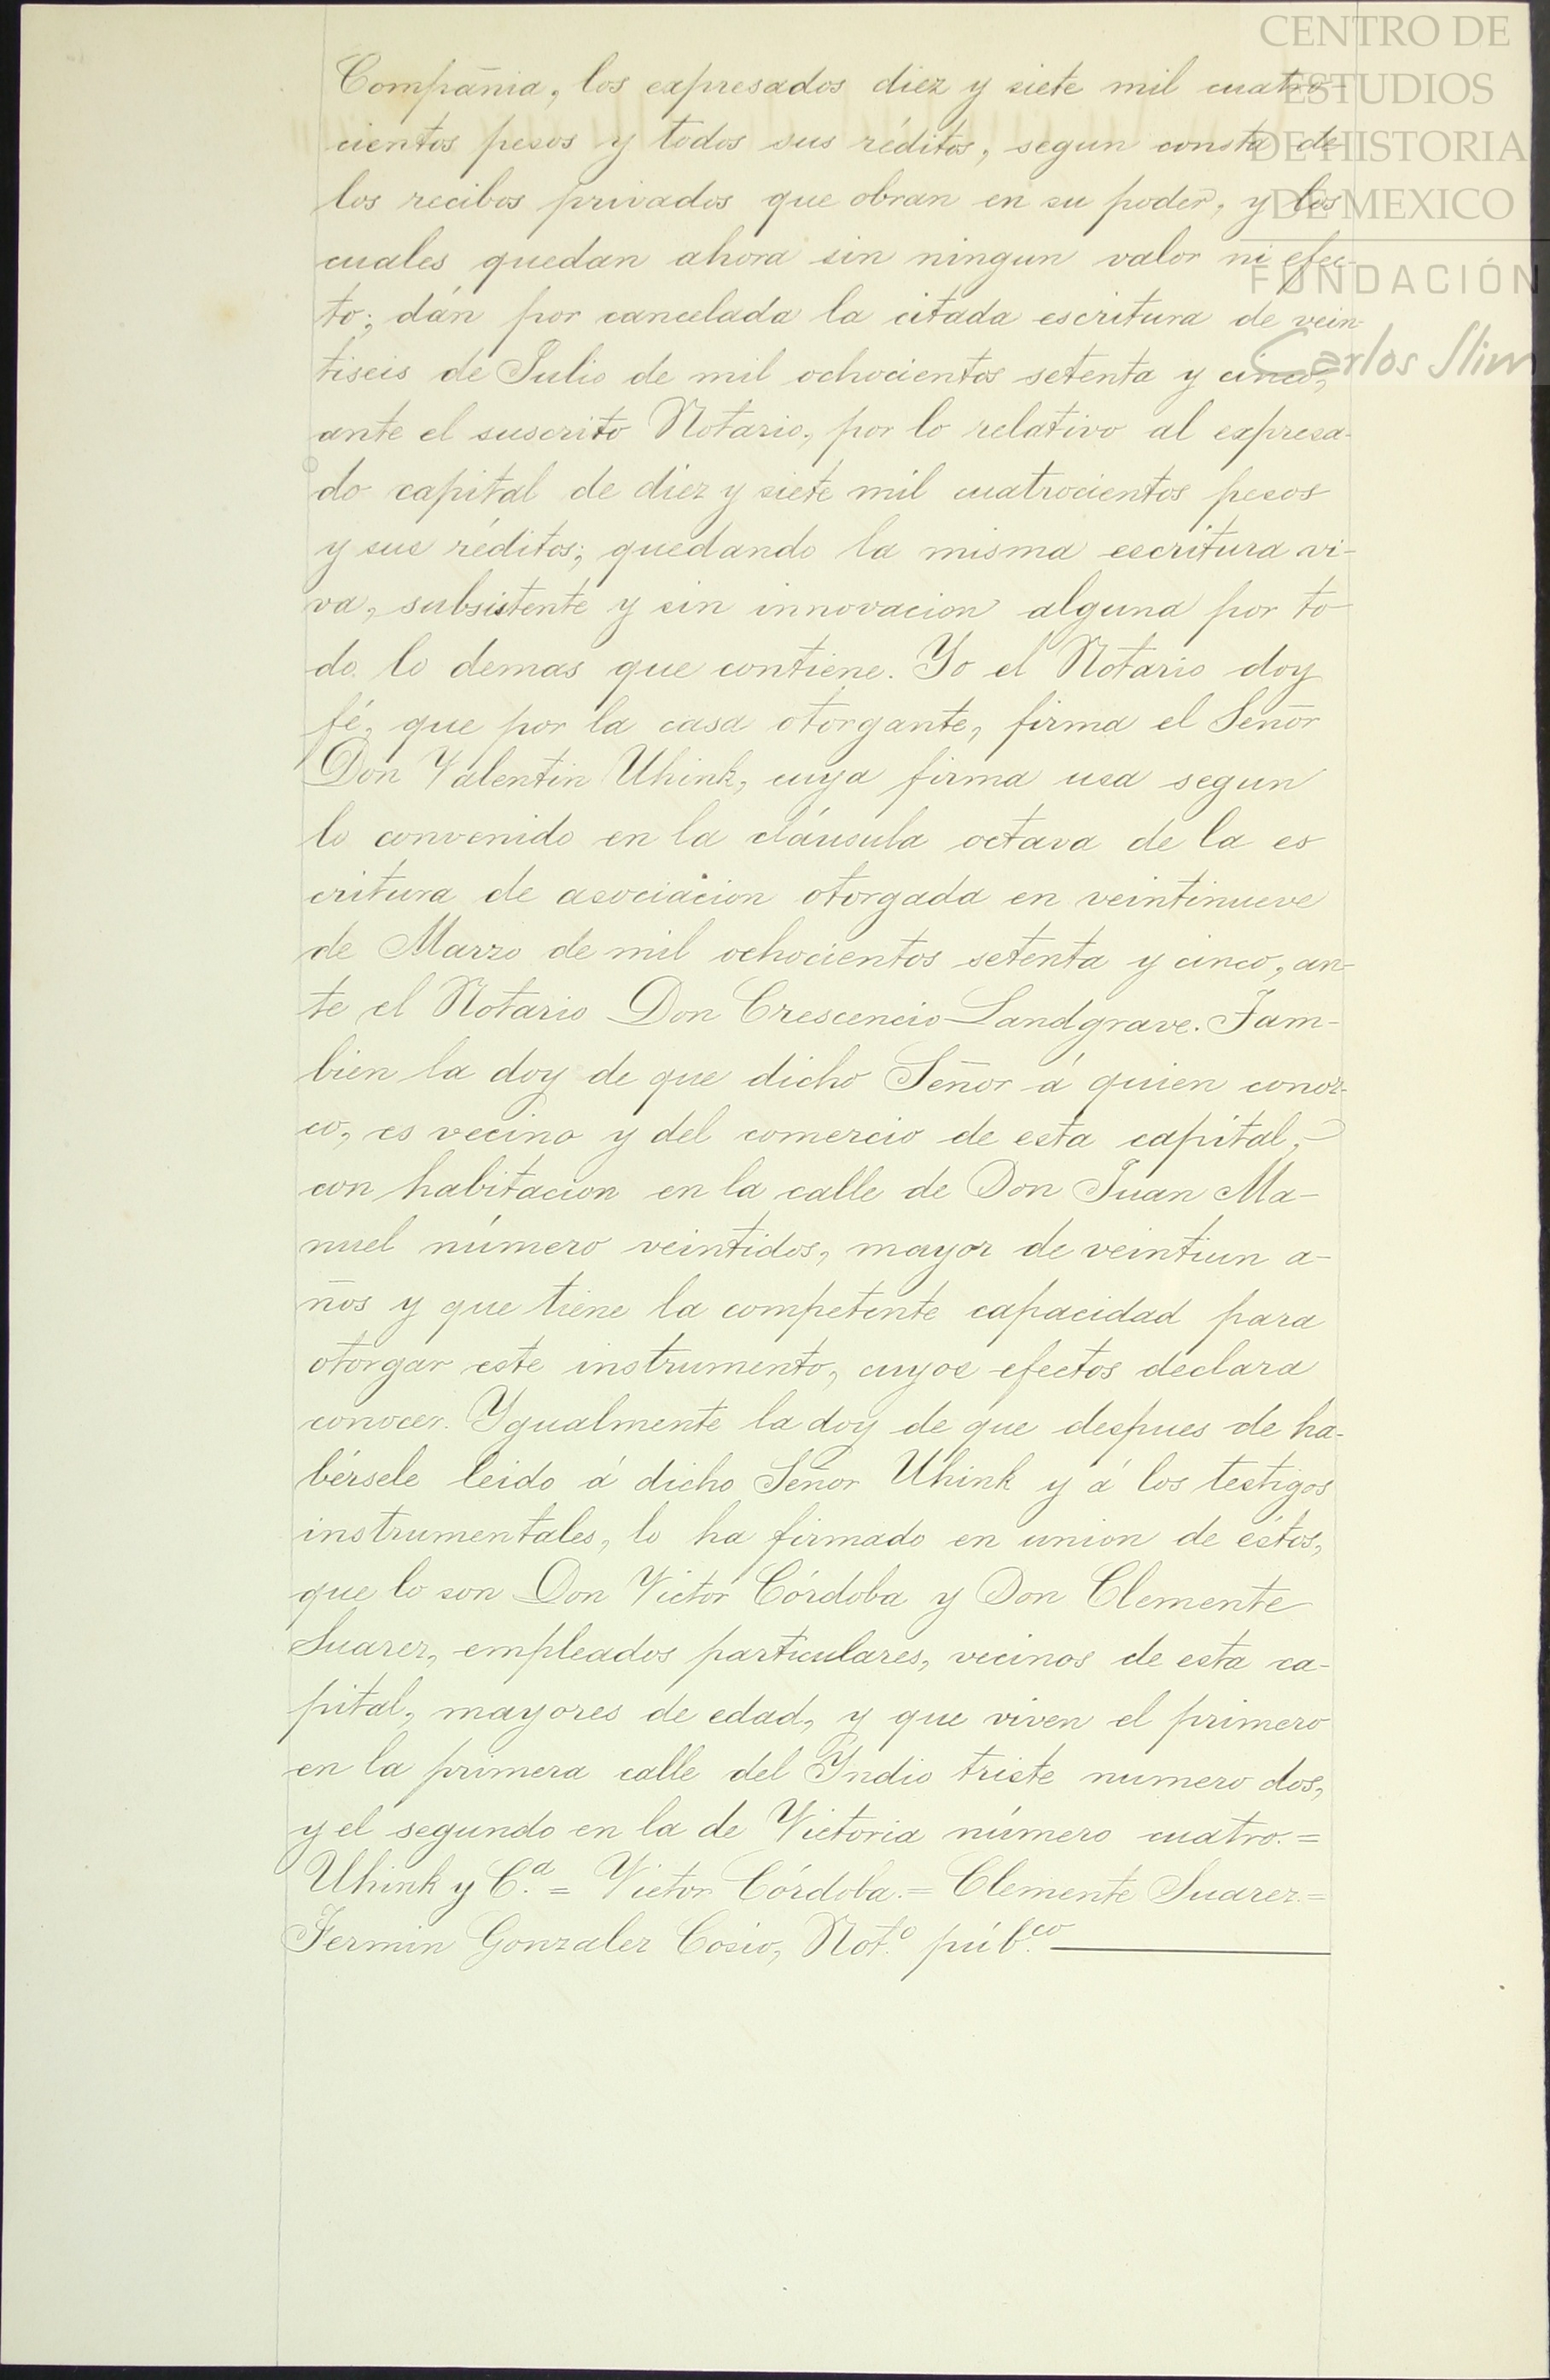 CENTRO DE
ESTUDIOS
DE HISTORIA
DE MEXICO
FUNDACIÓN
Carlos Slim
Compañia, los expresados diez y siete mil cuatro-
cientos pesos y todos sus réditos, segun consta de
los recibos privados que obran en su poder, y los
cuales quedan ahora sin ningun valor ni efec-
to; dán por cancelada la citada escritura de vein-
tiseis de Julio de mil ochocientos setenta y cinco,
ante el suscrito Notario, por lo relativo al expresa-
do capital de diez y siete mil cuatrocientos pesos
y sus réditos; quedando la misma escritura vi-
va, subsistente y sin innovacion alguna por to-
do lo demas que contiene. Yo el Notario doy
fé, que por la casa otorgante, firma el Señor
Don Valentin Uhink, cuya firma usa segun
lo convenido en la cláusula octava de la es
critura de asociacion otorgada en veintinueve
de Marzo de mil ochocientos setenta y cinco, an-
te el Notario Don Crescencio Landgrave. Tam-
bien la doy de que dicho Señor á quien conoz-
co, es vecino y del comercio de esta capital,
con habitacion en la calle de Don Juan Ma-
nuel número veintidos, mayor de veintiun a-
ños y que tiene la competente capacidad para
otorgar este instrumento, cuyos efectos declara
conocer. Ygualmente la doy de que despues de ha-
bérsele leido á dicho Señor Uhink y á los testigos
instrumentales, lo ha firmado en union de éstos,
que lo son Don Victor Córdoba y Don Clemente
Suarez, empleados particulares, vecinos de esta ca-
pital, mayores de edad, y que viven el primero
en la primera calle del Yndio triste numero dos,
y el segundo en la de Victoria número cuatro.=
Uhink y C.ª = Victor Córdoba.= Clemente Suarez.=
Fermin Gonzalez Cosio, Not.º púb.co